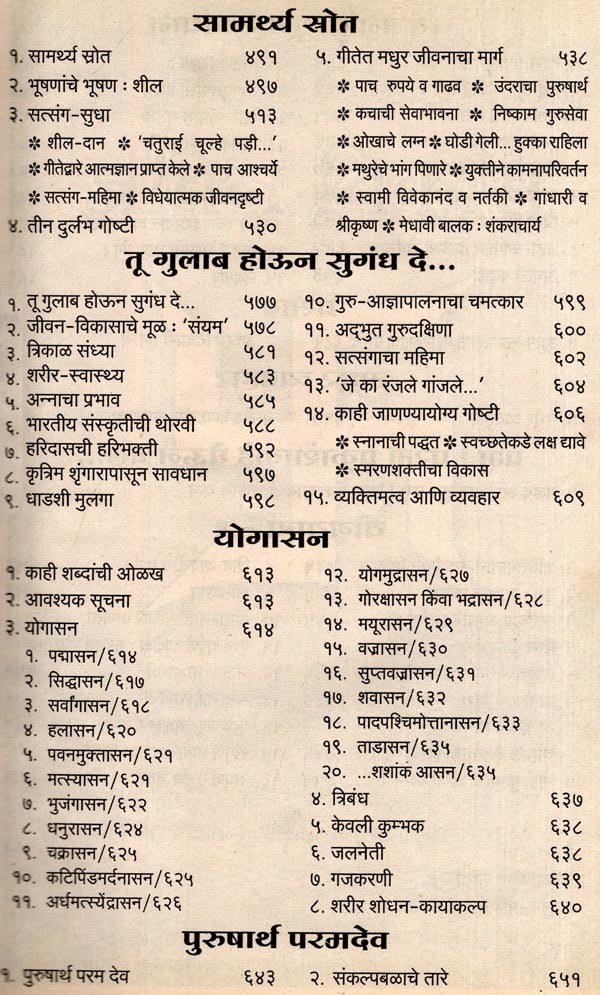 सामर्थ्य स्रोत
१. सामर्थ्य स्रोत ४९१
२. भूषणांचे भूषण : शील ४९७
३. सत्संग-सुधा ५१३
✽ शील-दान ✽ 'चतुराई चूल्हे पड़ी...'
✽ गीतेद्वारे आत्मज्ञान प्राप्त केले ✽ पाच आश्चर्ये
✽ सत्संग-महिमा ✽ विधेयात्मक जीवनदृष्टी
४. तीन दुर्लभ गोष्टी ५३०
५. गीतेत मधुर जीवनाचा मार्ग ५३८
✽ पाच रुपये व गाढव ✽ उंदराचा पुरुषार्थ
✽ कचाची सेवाभावना ✽ निष्काम गुरुसेवा
✽ ओखाचे लग्न ✽ घोडी गेली... हुक्का राहिला
✽ मथुरेचे भांग पिणारे ✽ युक्तीने कामनापरिवर्तन
✽ स्वामी विवेकानंद व नर्तकी ✽ गांधारी व
श्रीकृष्ण ✽ मेधावी बालक : शंकराचार्य
तू गुलाब होऊन सुगंध दे...
१. तू गुलाब होऊन सुगंध दे... ५७७
२. जीवन-विकासाचे मूळ : 'संयम' ५७८
३. त्रिकाळ संध्या ५८१
४. शरीर-स्वास्थ्य ५८३
५. अन्नाचा प्रभाव ५८५
६. भारतीय संस्कृतीची थोरवी ५८८
७. हरिदासची हरिभक्ती ५९२
८. कृत्रिम शृंगारापासून सावधान ५९७
९. धाडशी मुलगा ५९८
१०. गुरु-आज्ञापालनाचा चमत्कार ५९९
११. अद्भुत गुरुदक्षिणा ६००
१२. सत्संगाचा महिमा ६०२
१३. 'जे का रंजले गांजले...' ६०४
१४. काही जाणण्यायोग्य गोष्टी ६०६
✽ स्नानाची पद्धत ✽ स्वच्छतेकडे लक्ष द्यावे
✽ स्मरणशक्तीचा विकास
१५. व्यक्तिमत्व आणि व्यवहार ६०९
योगासन
१. काही शब्दांची ओळख ६१३
२. आवश्यक सूचना ६१३
३. योगासन ६१४
१. पद्मासन/६१४
२. सिद्धासन/६१७
३. सर्वांगासन/६१८
४. हलासन/६२०
५. पवनमुक्तासन/६२१
६. मत्स्यासन/६२१
७. भुजंगासन/६२२
८. धनुरासन/६२४
९. चक्रासन/६२५
१०. कटिपिंडमर्दनासन/६२५
११. अर्धमत्स्येंद्रासन/६२६
१२. योगमुद्रासन/६२७
१३. गोरक्षासन किंवा भद्रासन/६२८
१४. मयूरासन/६२९
१५. वज्रासन/६३०
१६. सुप्तवज्रासन/६३१
१७. शवासन/६३२
१८. पादपश्चिमोत्तानासन/६३३
१९. ताडासन/६३५
२०. ...शशांक आसन/६३५
४. त्रिबंध ६३७
५. केवली कुम्भक ६३८
६. जलनेती ६३८
७. गजकरणी ६३९
८. शरीर शोधन-कायाकल्प ६४०
पुरुषार्थ परमदेव
१. पुरुषार्थ परम देव ६४३
२. संकल्पबळाचे तारे ६५१